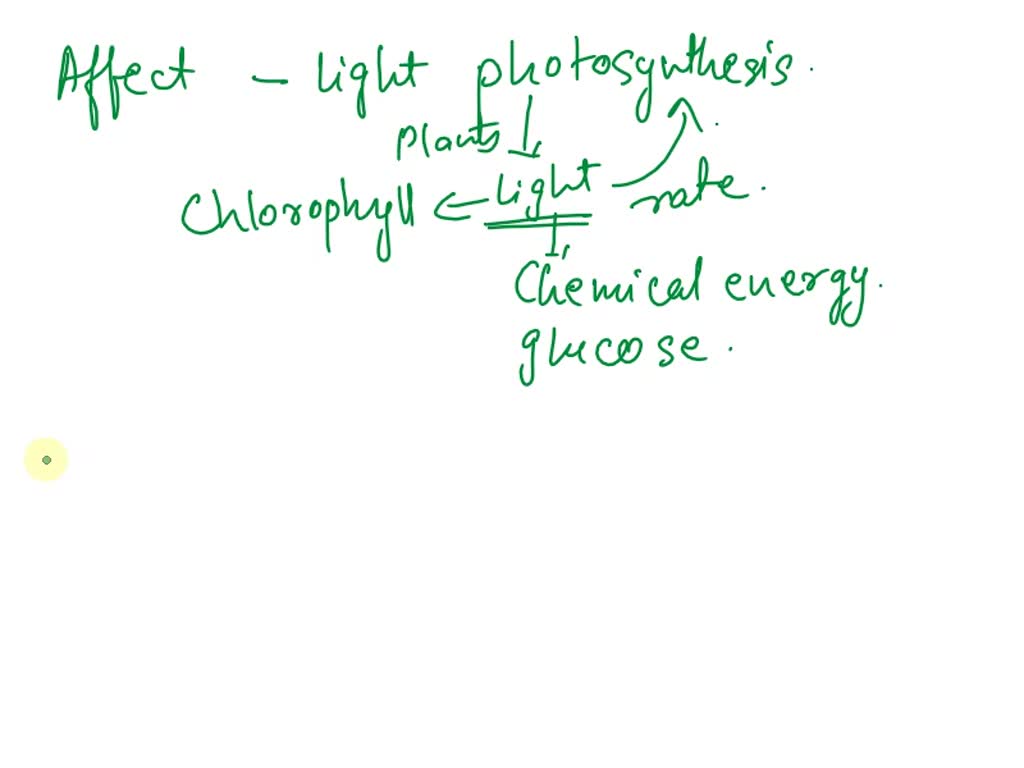 Affect - light photosynthesis.
plants
Chlorophyll ← light → rate.
Chemical energy.
glucose.